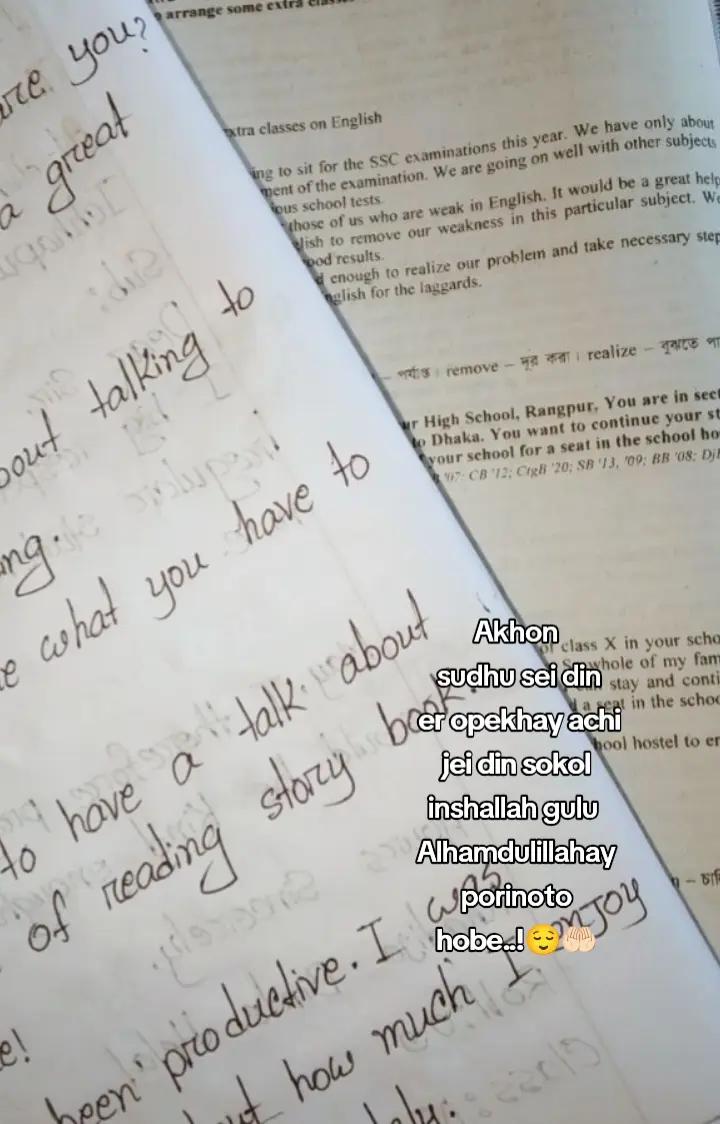 arrange some extra
extra classes on English
ing to sit for the SSC examinations this year. We have only about
ment of the examination. We are going on well with other subjects
ious school tests.
those of us who are weak in English. It would be a great help
lish to remove our weakness in this particular subject. We
ood results.
d enough to realize our problem and take necessary step
nglish for the laggards.
– পর্যাপ্ত। remove – দূর করা। realize – বুঝতে পা
ur High School, Rangpur, You are in sect
to Dhaka. You want to continue your st
your school for a seat in the school ho
'07; CB '12; CtgB '20; SB '13, '09; BB '08; DjB
of class X in your scho
whole of my fam
stay and conti
a seat in the schoo
hool hostel to en
are you?
a great
bout talking to
ng.
e what you have to
to have a talk about
of reading story book.
e!
been productive. I was
but how much I enjoy
ly.
Akhon
sudhu sei din
er opekhay achi
jei din sokol
inshallah gulu
Alhamdulillahay
porinoto
hobe..!😌🤲🏻